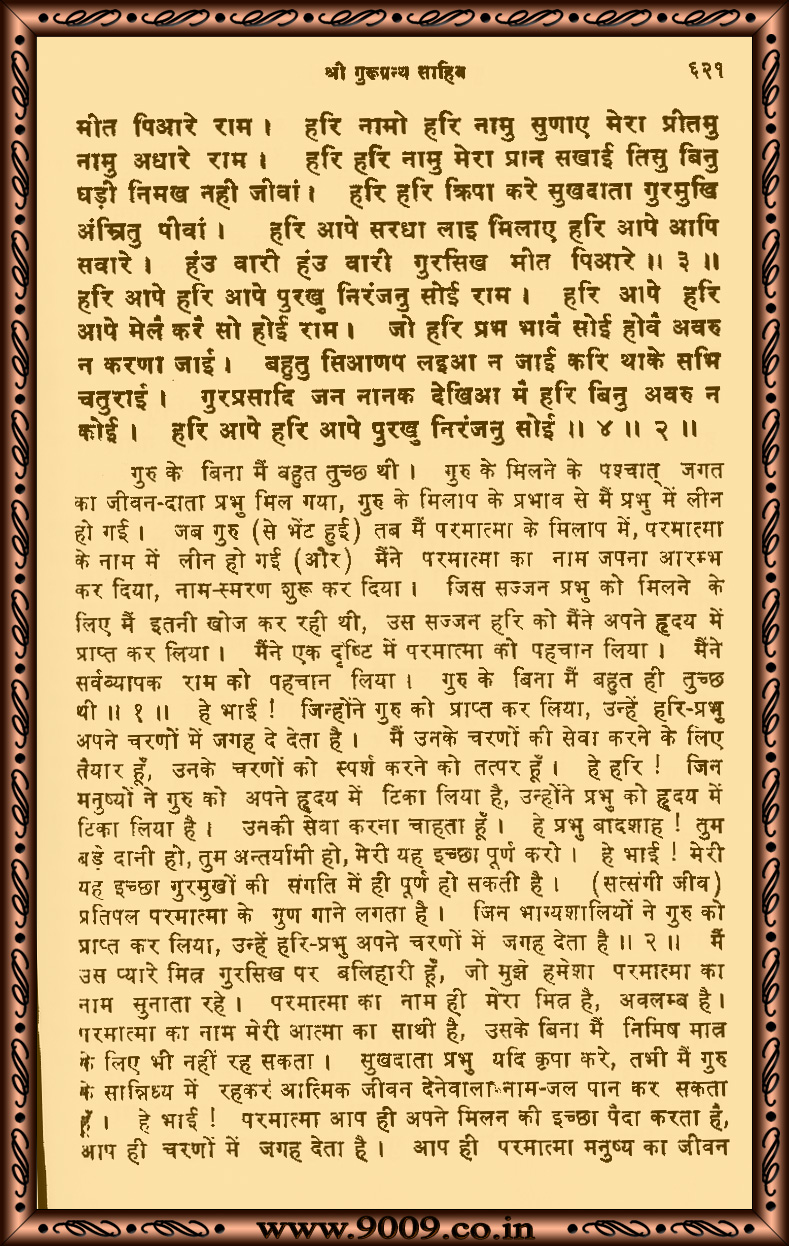 श्री गुरूग्रन्थ साहिब ६२१
मीत पिआरे राम । हरि नामो हरि नामु सुणाए मेरा प्रीतमु
नामु अधारे राम । हरि हरि नामु मेरा प्रान सखाई तिसु बिनु
घड़ी निमख नही जीवां । हरि हरि क्रिपा करे सुखदाता गुरमुखि
अंम्रितु पीवां । हरि आपे सरधा लाइ मिलाए हरि आपे आपि
सवारे । हंउ वारी हंउ वारी गुरसिख मीत पिआरे ॥ ३ ॥
हरि आपे हरि आपे पुरखु निरंजनु सोई राम । हरि आपे हरि
आपे मेलै करै सो होई राम । जो हरि प्रभ भावै सोई होवै अवरु
न करणा जाई । बहुतु सिआणप लइआ न जाई करि थाके सभि
चतुराई । गुरप्रसादि जन नानक देखिआ मै हरि बिनु अवरु न
कोई । हरि आपे हरि आपे पुरखु निरंजनु सोई ॥ ४ ॥ २ ॥
गुरु के बिना मैं बहुत तुच्छ थी । गुरु के मिलने के पश्चात् जगत
का जीवन-दाता प्रभु मिल गया, गुरु के मिलाप के प्रभाव से मैं प्रभु में लीन
हो गई । जब गुरु (से भेंट हुई) तब मैं परमात्मा के मिलाप में, परमात्मा
के नाम में लीन हो गई (और) मैंने परमात्मा का नाम जपना आरम्भ
कर दिया, नाम-स्मरण शुरू कर दिया । जिस सज्जन प्रभु को मिलने के
लिए मैं इतनी खोज कर रही थी, उस सज्जन हरि को मैंने अपने हृदय में
प्राप्त कर लिया । मैंने एक दृष्टि में परमात्मा को पहचान लिया । मैंने
सर्वव्यापक राम को पहचान लिया । गुरु के बिना मैं बहुत ही तुच्छ
थी ॥ १ ॥ हे भाई ! जिन्होंने गुरु को प्राप्त कर लिया, उन्हें हरि-प्रभु
अपने चरणों में जगह दे देता है । मैं उनके चरणों की सेवा करने के लिए
तैयार हूँ, उनके चरणों को स्पर्श करने को तत्पर हूँ । हे हरि ! जिन
मनुष्यों ने गुरु को अपने हृदय में टिका लिया है, उन्होंने प्रभु को हृदय में
टिका लिया है । उनकी सेवा करना चाहता हूँ । हे प्रभु बादशाह ! तुम
बड़े दानी हो, तुम अन्तर्यामी हो, मेरी यह इच्छा पूर्ण करो । हे भाई ! मेरी
यह इच्छा गुरमुखों की संगति में ही पूर्ण हो सकती है । (सत्संगी जीव)
प्रतिपल परमात्मा के गुण गाने लगता है । जिन भाग्यशालियों ने गुरु को
प्राप्त कर लिया, उन्हें हरि-प्रभु अपने चरणों में जगह देता है ॥ २ ॥ मैं
उस प्यारे मित्र गुरसिख पर बलिहारी हूँ, जो मुझे हमेशा परमात्मा का
नाम सुनाता रहे । परमात्मा का नाम ही मेरा मित्र है, अवलम्ब है ।
परमात्मा का नाम मेरी आत्मा का साथी है, उसके बिना मैं निमिष मात्र
के लिए भी नहीं रह सकता । सुखदाता प्रभु यदि कृपा करे, तभी मैं गुरु
के सान्निध्य में रहकर आत्मिक जीवन देनेवाला नाम-जल पान कर सकता
हूँ । हे भाई ! परमात्मा आप ही अपने मिलन की इच्छा पैदा करता है,
आप ही चरणों में जगह देता है । आप ही परमात्मा मनुष्य का जीवन
www.9009.co.in